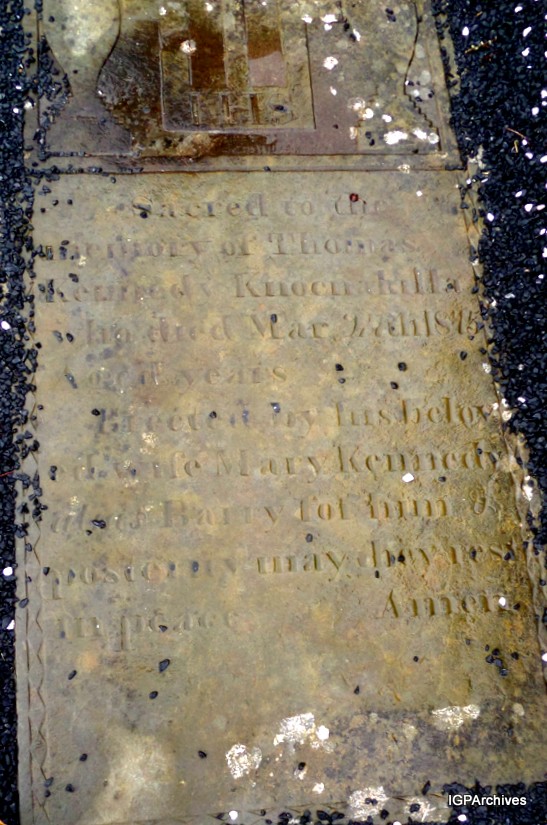 IHS
Sacred to the
memory of Thomas
Kennedy Knocnakilla
who died Mar, 1815
Aged years
Erected by his belov
ed wife Mary Kennedy
Barry for him &
posterity may they rest
in peace Amen
IGPArchives